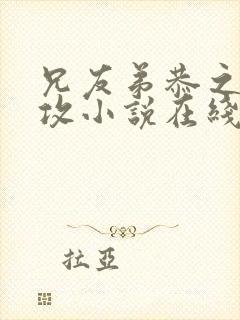 兄友弟恭之
攻小說在綫
拉亞